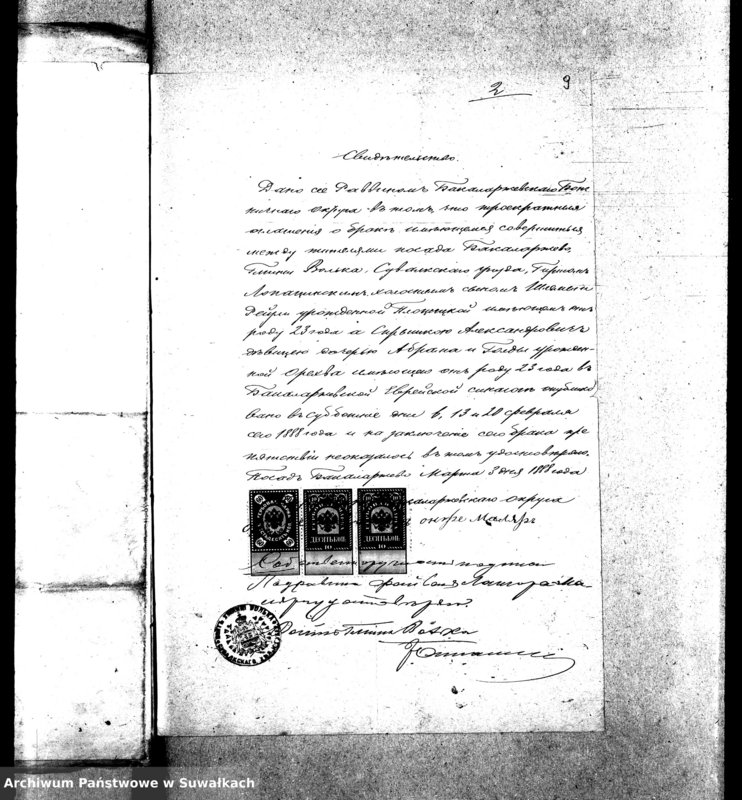 2
9
Свидѣтельство.
Дано сіе Раввиномъ Бакаларжевскаго Бож-
ничнаго округа въ томъ что троекратныя
оглашенія о бракѣ имѣющемся совершиться
между жителями посада Бакаларжево,
Гмины Волька, Сувалкскаго уѣзда,
холостымъ сыномъ
Дейры урожденной имѣющимъ отъ
роду 23 года а Александровичъ
дѣвицею дочерью Абрама и Гольды урожден-
ной имѣющею отъ роду 23 года въ
Бакаларжевской Еврейской синагогѣ опублико
вано въ субботніе дни 6, 13 и 20 февраля
сего 1888 года и на заключеніе сего брака пре
пятствій неоказалось въ томъ удостовѣряю.
Посадъ Бакаларжево Марта 3 дня 1888 года
Бакаларжевскаго округа
Маляръ
ДЕСЯТЬ КОП.
10
ДЕСЯТЬ КОП.
10
Собственноручность подписи
удостовѣряю.
Войтъ Гмины Волька
Archiwum Państwowe w Suwałkach